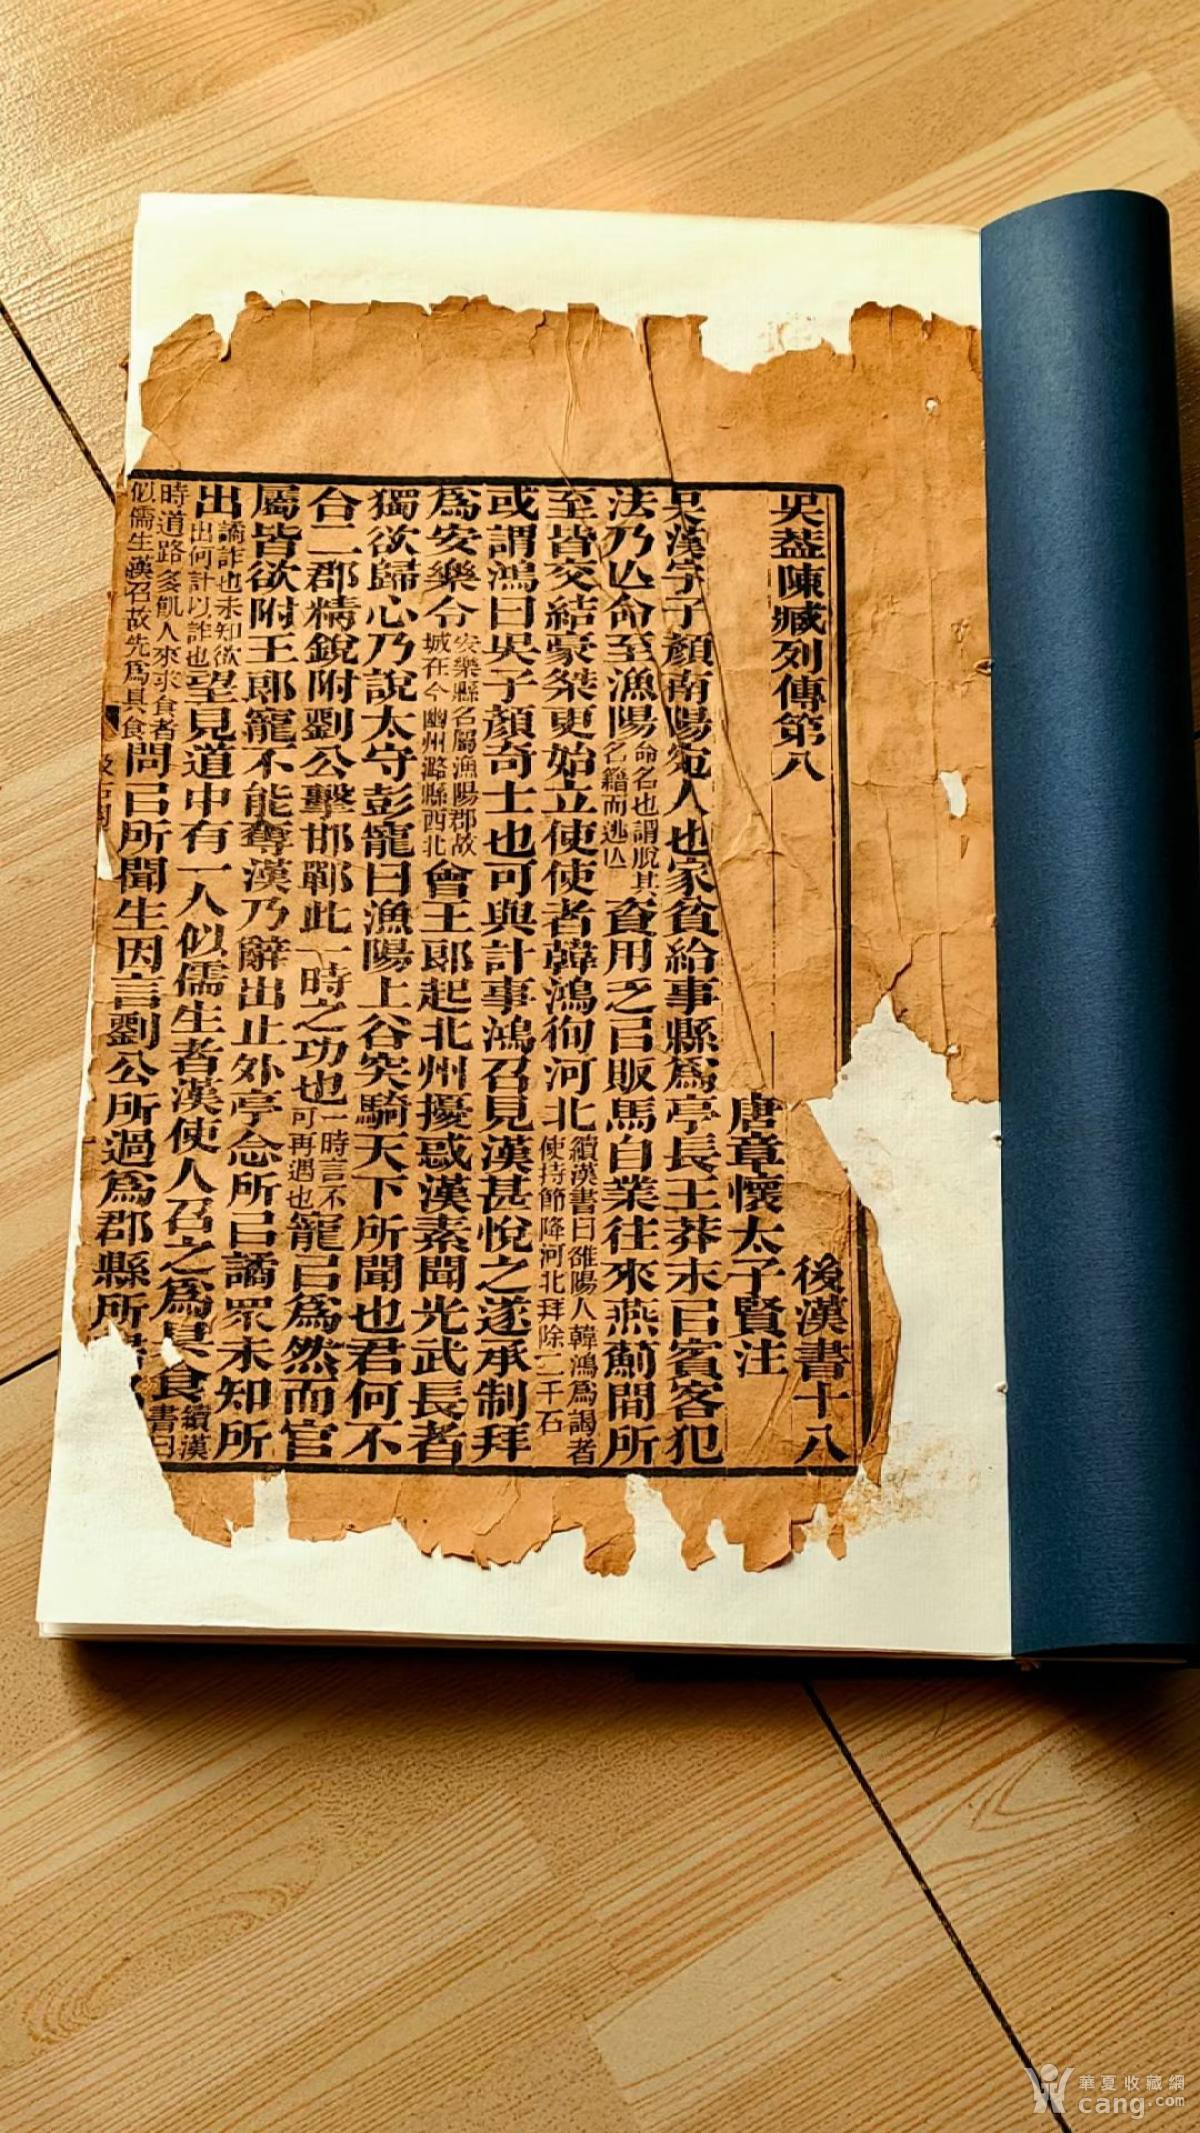 吳葢陳臧列傳第八
後漢書十八
唐章懷太子賢注
吳漢字子顏南陽宛人也家貧給事縣爲亭長王莽末㠯賓客犯
法乃亡命至漁陽命名也謂脫其名籍而逃亡資用乏㠯販馬自業往來燕薊間所
至皆交結豪桀更始立使使者韓鴻徇河北續漢書曰雒陽人韓鴻爲謁者使持節降河北拜除二千石
或謂鴻曰吳子顏奇士也可與計事鴻召見漢甚悅之遂承制拜
爲安樂令安樂縣名屬漁陽郡故城在今幽州潞縣西北會王郞起北州擾惑漢素聞光武長者
獨欲歸心乃說太守彭寵曰漁陽上谷突騎天下所聞也君何不
合二郡精銳附劉公擊邯鄲此一時之功也一時言不可再遇也寵㠯爲然而官
屬皆欲附王郞寵不能奪漢乃辭出止外亭念所㠯譎眾未知所
出譎詐也未知欲出何計以詐也望見道中有一人似儒生者漢使人召之爲具食續漢書曰
時道路多飢人來求食者似儒生漢召故先爲具食問㠯所聞生因言劉公所過爲郡縣所
華夏收藏網
cang.com